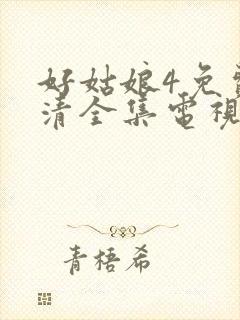 好姑娘4免
清全集電視
青梧希